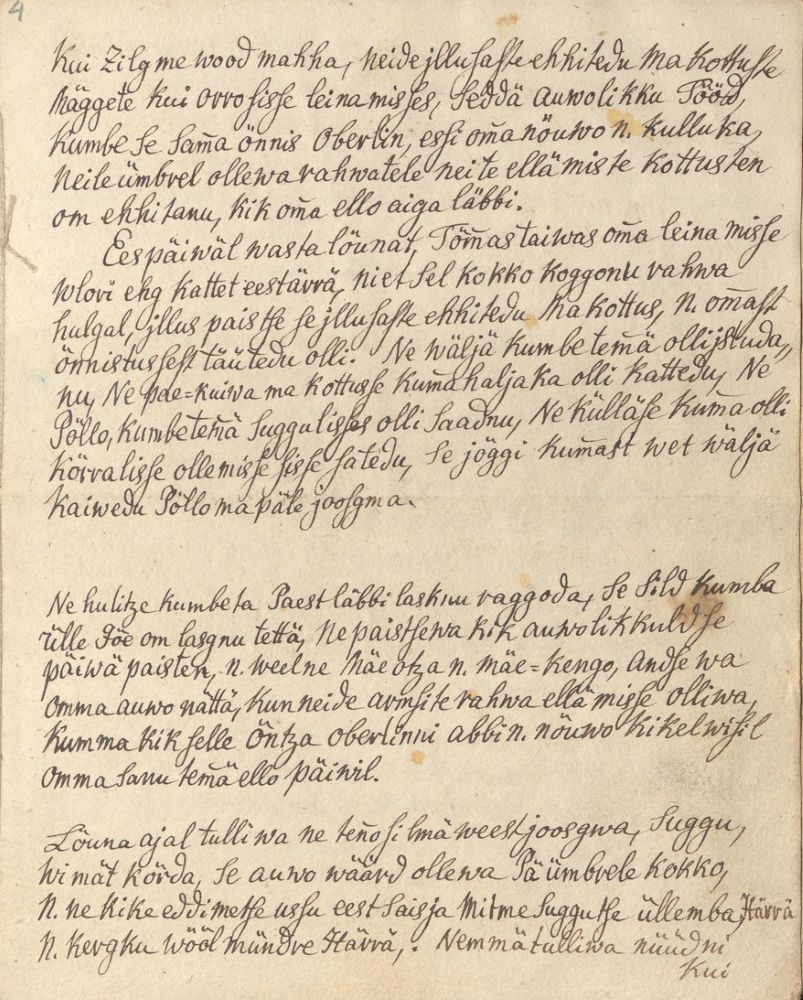 4
Kui Zilgme wood mahha, neide jllusaste ehhitedu Ma kottusse
Näggete kui orro sisse leinamisses, Seddä auwolikku Tööd,
Kumbe se sam̄a önnis Oberlin, essi om̄a nöuwo n. kulluka,
Neile ümbrel ollewa rahwatele neite ellämiste kottusten
om ehhitanu, kik om̄a ello aiga läbbi.
Eespäiwäl wasta löunat, Töm̄as taiwas om̄a leina misse
wlori ehg kattet eestärrä, niet sel kokko koggonu rahwa
hulgal, jllus paistse se jllusaste ehhitedu Ma kottus, n. om̄ast
önnistussest täütedu olli. Ne wäljä kumbe tem̄ä olli jstuda„
nu, Ne pae=kuiwa ma kottusse kum̄a haljaka olli kattedu, Ne
Pöllo, kumbe tem̄ä suggulisses olli saadnu, Ne külläse kum̄a olli
körralisse ollemisse sisse satedu, se jöggi kum̄ast wet wäljä
kaiwedu Pölloma päle joosgma.
Ne hulitze kumbeta Paest läbbi lasknu raggoda, se sild kumba
ülle Jöe om lasgnu tettä, Ne paistsewa kik auwolik kuldse
päiwä paisten, n. weel ne Mäe otza n. mäe=kengo, andse wa
omma auwo nättä, kun neide armsite rahwa ellämisse olliwa,
Kumma kik selle Öntza Oberlinni abbi n. nöuwo kikelwisil
omma sanu tem̄ä ello päiwil.
Löuna ajal tulliwa ne ten̄o silmä weest joosgwa, Suggu,
wimät körda, se auwo wäärd ollewa Pä ümbrele kokko,
N. ne kike eddimetse ussu eest saisja Mitme Suggutse üllemba Härrä
N. kergku wööl mündre Härrä,. Nemmä tulliwa nüüdni
Kui